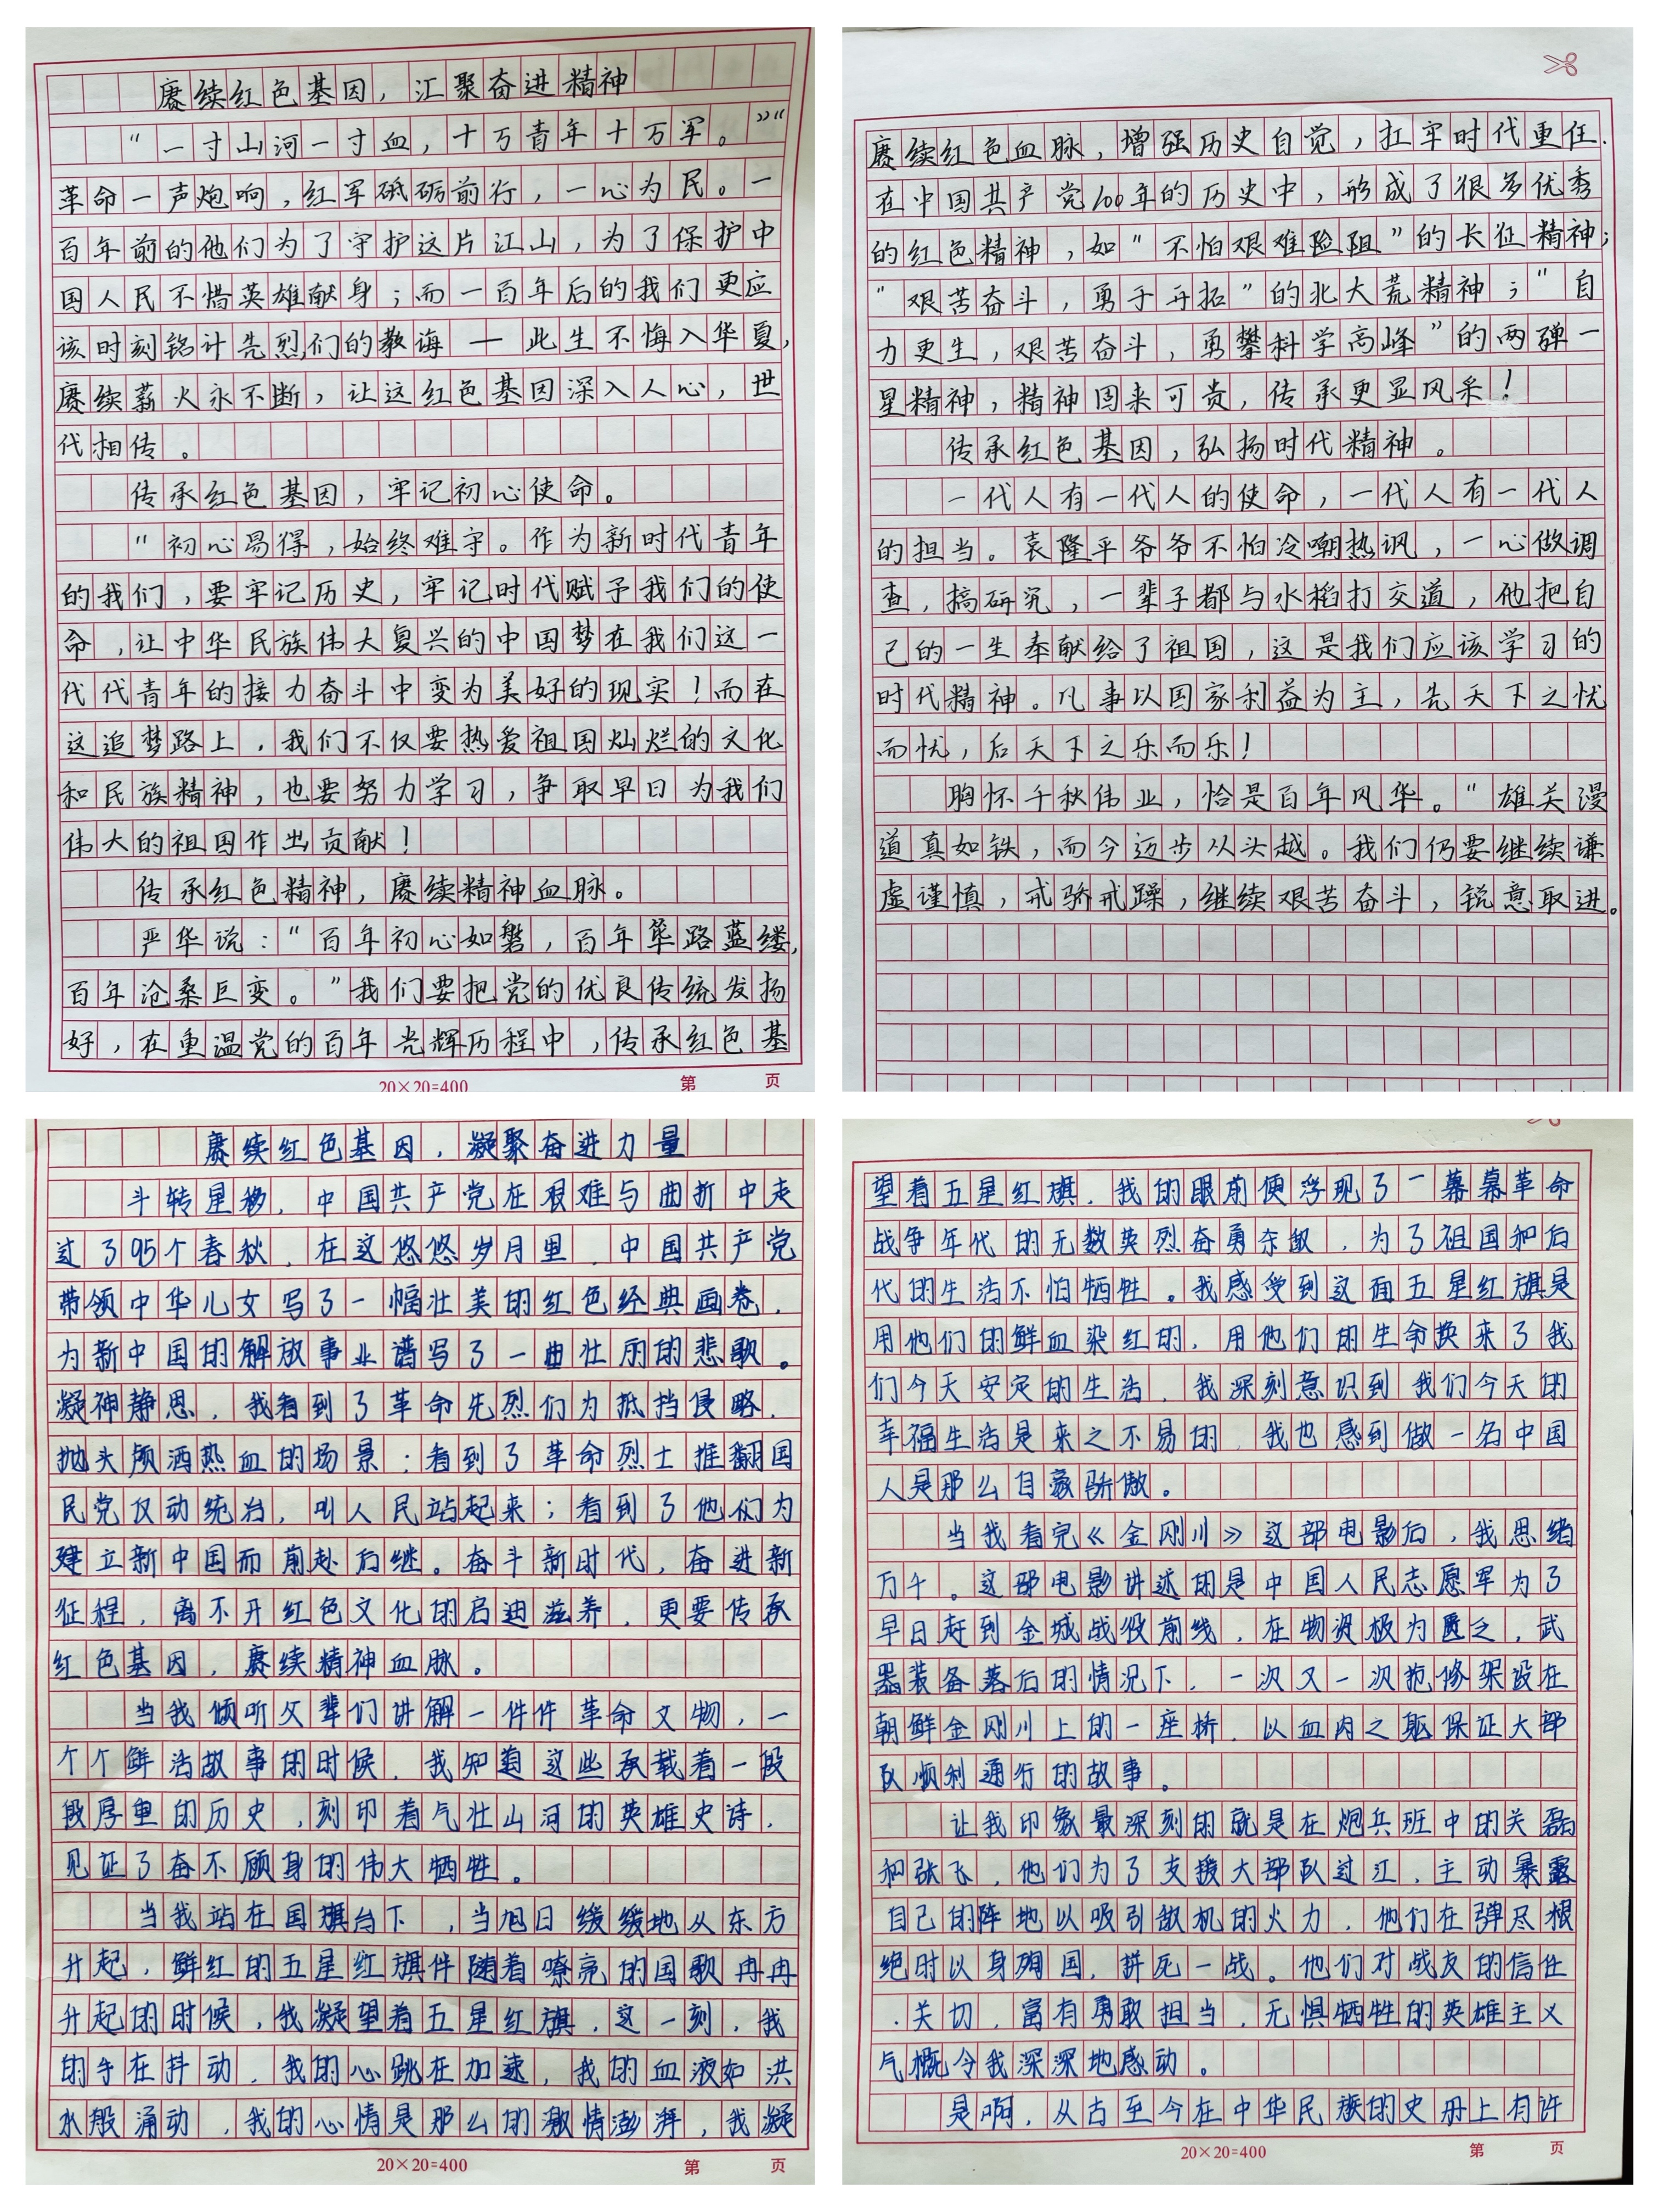 赓续红色基因，汇聚奋进精神
“一寸山河一寸血，十万青年十万军。”“
革命一声炮响，红军砥砺前行，一心为民。一
百年前的他们为了守护这片江山，为了保护中
国人民不惜英雄献身；而一百年后的我们更应
该时刻铭计先烈们的教诲 — 此生不悔入华夏，
赓续薪火永不断，让这红色基因深入人心，世
代相传。
传承红色基因，牢记初心使命。
“初心易得，始终难守。作为新时代青年
的我们，要牢记历史，牢记时代赋予我们的使
命，让中华民族伟大复兴的中国梦在我们这一
代代青年的接力奋斗中变为美好的现实！而在
这追梦路上，我们不仅要热爱祖国灿烂的文化
和民族精神，也要努力学习，争取早日为我们
伟大的祖国作出贡献！
传承红色精神，赓续精神血脉。
严华说：“百年初心如磐，百年筚路蓝缕，
百年沧桑巨变。”我们要把党的优良传统发扬
好，在重温党的百年光辉历程中，传承红色基
20×20=400 第 页
赓续红色血脉，增强历史自觉，扛牢时代重任.
在中国共产党100年的历史中，形成了很多优秀
的红色精神，如“不怕艰难险阻”的长征精神；
“艰苦奋斗，勇于开拓”的北大荒精神；“自
力更生，艰苦奋斗，勇攀科学高峰”的两弹一
星精神，精神固来可贵，传承更显风采！
传承红色基因，弘扬时代精神。
一代人有一代人的使命，一代人有一代人
的担当。袁隆平爷爷不怕冷嘲热讽，一心做调
查，搞研究，一辈子都与水稻打交道，他把自
己的一生奉献给了祖国，这是我们应该学习的
时代精神。凡事以国家利益为主，先天下之忧
而忧，后天下之乐而乐！
胸怀千秋伟业，恰是百年风华。“雄关漫
道真如铁，而今迈步从头越。我们仍要继续谦
虚谨慎，戒骄戒躁，继续艰苦奋斗，锐意取进。
赓续红色基因，凝聚奋进力量
斗转星移，中国共产党在艰难与曲折中走
过了95个春秋，在这悠悠岁月里，中国共产党
带领中华儿女写了一幅壮美的红色经典画卷，
为新中国的解放事业谱写了一曲壮丽的悲歌。
凝神静思，我看到了革命先烈们为抵挡侵略，
抛头颅洒热血的场景；看到了革命烈士推翻国
民党反动统治，叫人民站起来；看到了他们为
建立新中国而前赴后继。奋斗新时代，奋进新
征程，离不开红色文化的启迪滋养，更要传承
红色基因，赓续精神血脉。
当我倾听父辈们讲解一件件革命文物，一
个个鲜活故事的时候，我知道这些承载着一段
段厚重的历史，刻印着气壮山河的英雄史诗，
见证了奋不顾身的伟大牺牲。
当我站在国旗台下，当旭日缓缓地从东方
升起，鲜红的五星红旗伴随着嘹亮的国歌冉冉
升起的时候，我凝望着五星红旗，这一刻，我
的手在抖动，我的心跳在加速，我的血液如洪
水般涌动，我的心情是那么的激情澎湃，我凝
20×20=400 第 页
望着五星红旗，我的眼前便浮现了一幕幕革命
战争年代的无数英烈奋勇杀敌，为了祖国和后
代的生活不怕牺牲。我感受到这面五星红旗是
用他们的鲜血染红的，用他们的生命换来了我
们今天安定的生活，我深刻意识到我们今天的
幸福生活是来之不易的，我也感到做一名中国
人是那么自豪骄傲。
当我看完《金刚川》这部电影后，我思绪
万千。这部电影讲述的是中国人民志愿军为了
早日赶到金城战役前线，在物资极为匮乏，武
器装备落后的情况下，一次又一次抢修架设在
朝鲜金刚川上的一座桥，以血肉之躯保证大部
队顺利通行的故事。
让我印象最深刻的就是在炮兵班中的关磊
和张飞，他们为了支援大部队过江，主动暴露
自己的阵地以吸引敌机的火力，他们在弹尽粮
绝时以身殉国，拼死一战。他们对战友的信任
、关切，富有勇敢担当，无惧牺牲的英雄主义
气概令我深深地感动。
是啊，从古至今在中华民族的史册上有许
20×20=400 第 页